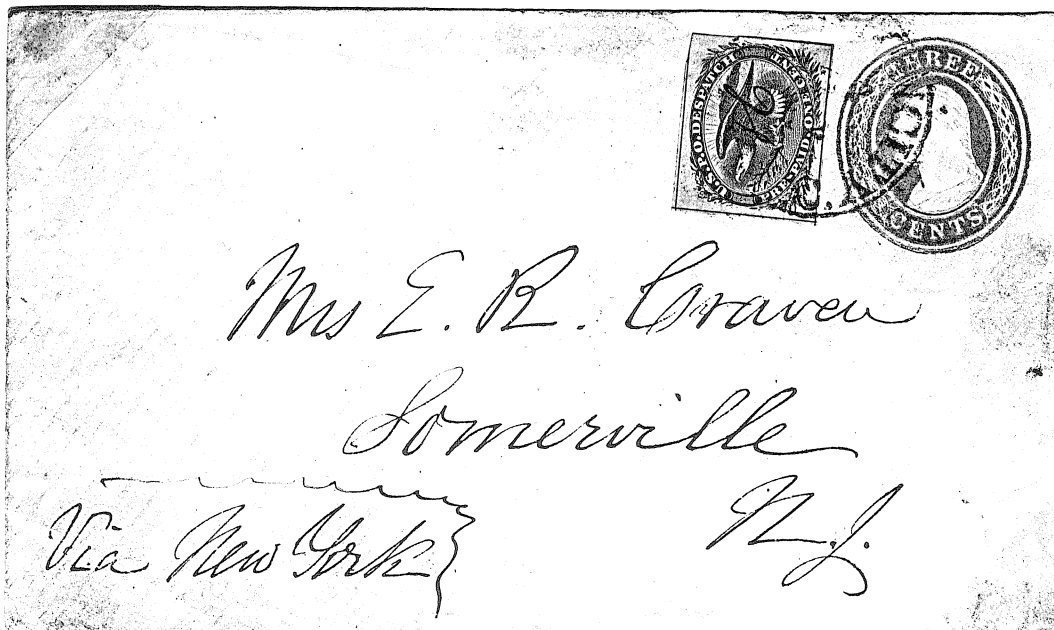 U.S.P.O. DESPATCH
PRE-PAID ONE CENT
THREE
CENTS
Mrs E. R. Craven
Somerville
N. J.
Via New York